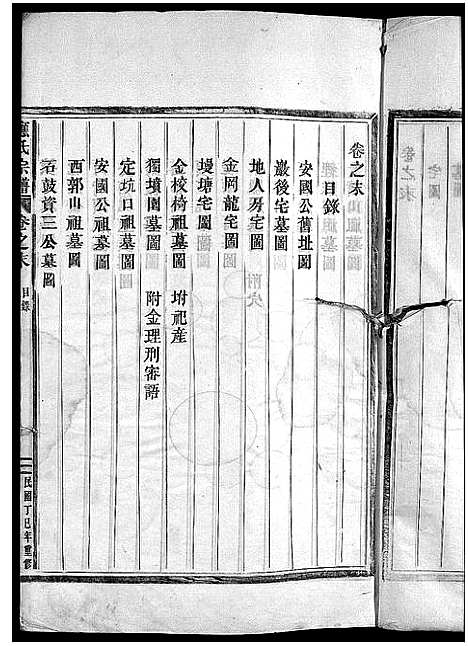 卷之末
目錄
安國公舊址圖
巖後宅墓圖
地人房宅圖
金岡龍宅圖
墁塘宅圖
金梭椅祖墓圖 坿祀產
獨墳園墓圖 附金理刑審語
定坑口祖墓圖
安國公祖墓圖
西郭山祖墓圖
石鼓資三公墓圖
氏宗譜 卷之末 目錄
民國丁巳年重修
卷之末
宅圖